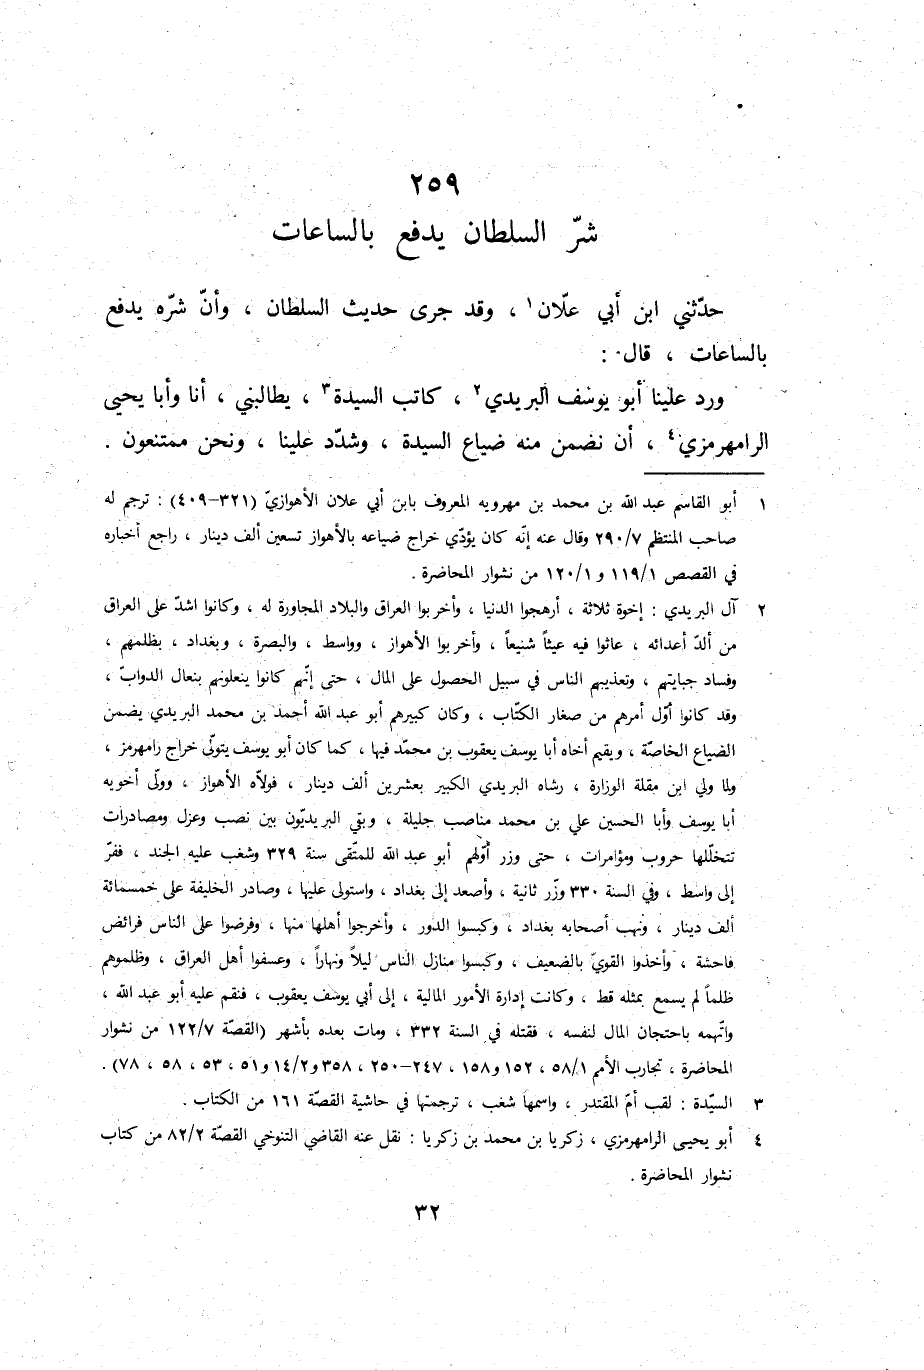 ٢٥٩
شرّ السلطان يدفع بالساعات
حدّثني ابن أبي علّان١ ، وقد جرى حديث السلطان ، وأنّ شرّه يدفع
بالساعات ، قال :
ورد علينا أبو يوسف البريدي٢ ، كاتب السيدة٣ ، يطالبني ، أنا وأبا يحيى
الرامهرمزي٤ ، أن نضمن منه ضياع السيدة ، وشدّد علينا ، ونحن ممتنعون .
١ أبو القاسم عبد الله بن محمد بن مهرويه المعروف بابن أبي علان الأهوازيّ (٣٢١–٤٠٩) : ترجم له
صاحب المنتظم ٢٩٠/٧ وقال عنه إنّه كان يؤدّي خراج ضياعه بالأهواز تسعين ألف دينار ، راجع أخباره
في القصص ١١٩/١ و ١٢٠/١ من نشوار المحاضرة .
٢ آل البريدي : إخوة ثلاثة ، أرهجوا الدنيا ، وأخربوا العراق والبلاد المجاورة له ، وكانوا اشدّ على العراق
من ألدّ أعدائه ، عاثوا فيه عيثاً شنيعاً ، وأخربوا الأهواز ، وواسط ، والبصرة ، وبغداد ، بظلمهم ،
وفساد جبايتهم ، وتعذيبهم الناس في سبيل الحصول على المال ، حتى إنّهم كانوا ينعلونهم بنعال الدوابّ ،
وقد كانوا أوّل أمرهم من صغار الكتّاب ، وكان كبيرهم أبو عبد الله أحمد بن محمد البريدي يضمن
الضياع الخاصّة ، ويقيم أخاه أبا يوسف يعقوب بن محمّد فيها ، كما كان أبو يوسف يتولّى خراج رامهرمز ،
ولما ولي ابن مقلة الوزارة ، رشاه البريدي الكبير بعشرين ألف دينار ، فولاّه الأهواز ، وولّى أخويه
أبا يوسف وأبا الحسين علي بن محمد مناصب جليلة ، وبقي البريديّون بين نصب وعزل ومصادرات
تتخلّلها حروب ومؤامرات ، حتى وزر أوّلهم أبو عبد الله للمتّقى سنة ٣٢٩ وشغب عليه الجند ، ففرّ
إلى واسط ، وفي السنة ٣٣٠ وزّر ثانية ، وأصعد إلى بغداد ، واستولى عليها ، وصادر الخليفة على خمسمائة
ألف دينار ، ونهب أصحابه بغداد ، وكبسوا الدور ، وأخرجوا أهلها منها ، وفرضوا على الناس فرائض
فاحشة ، وأخذوا القويّ بالضعيف ، وكبسوا منازل الناس ليلاً ونهاراً ، وعسفوا أهل العراق ، وظلموهم
ظلماً لم يسمع بمثله قط ، وكانت إدارة الأمور المالية ، إلى أبي يوسف يعقوب ، فنقم عليه أبو عبد الله ،
واتّهمه باحتجان المال لنفسه ، فقتله في السنة ٣٣٢ ، ومات بعده بأشهر (القصّة ١٢٢/٧ من نشوار
المحاضرة ، تجارب الأمم ٥٨/١ ، ١٥٢ و١٥٨ ، ٢٤٧–٢٥٠ ، ٣٥٨ و١٤/٢ و٥١ ، ٥٣ ، ٥٨ ، ٧٨) .
٣ السيّدة : لقب أمّ المقتدر ، واسمها شغب ، ترجمتها في حاشية القصّة ١٦١ من الكتاب .
٤ أبو يحيى الرامهرمزي ، زكريا بن محمد بن زكريا : نقل عنه القاضي التنوخي القصّة ٨٢/٢ من كتاب
نشوار المحاضرة .
٣٢